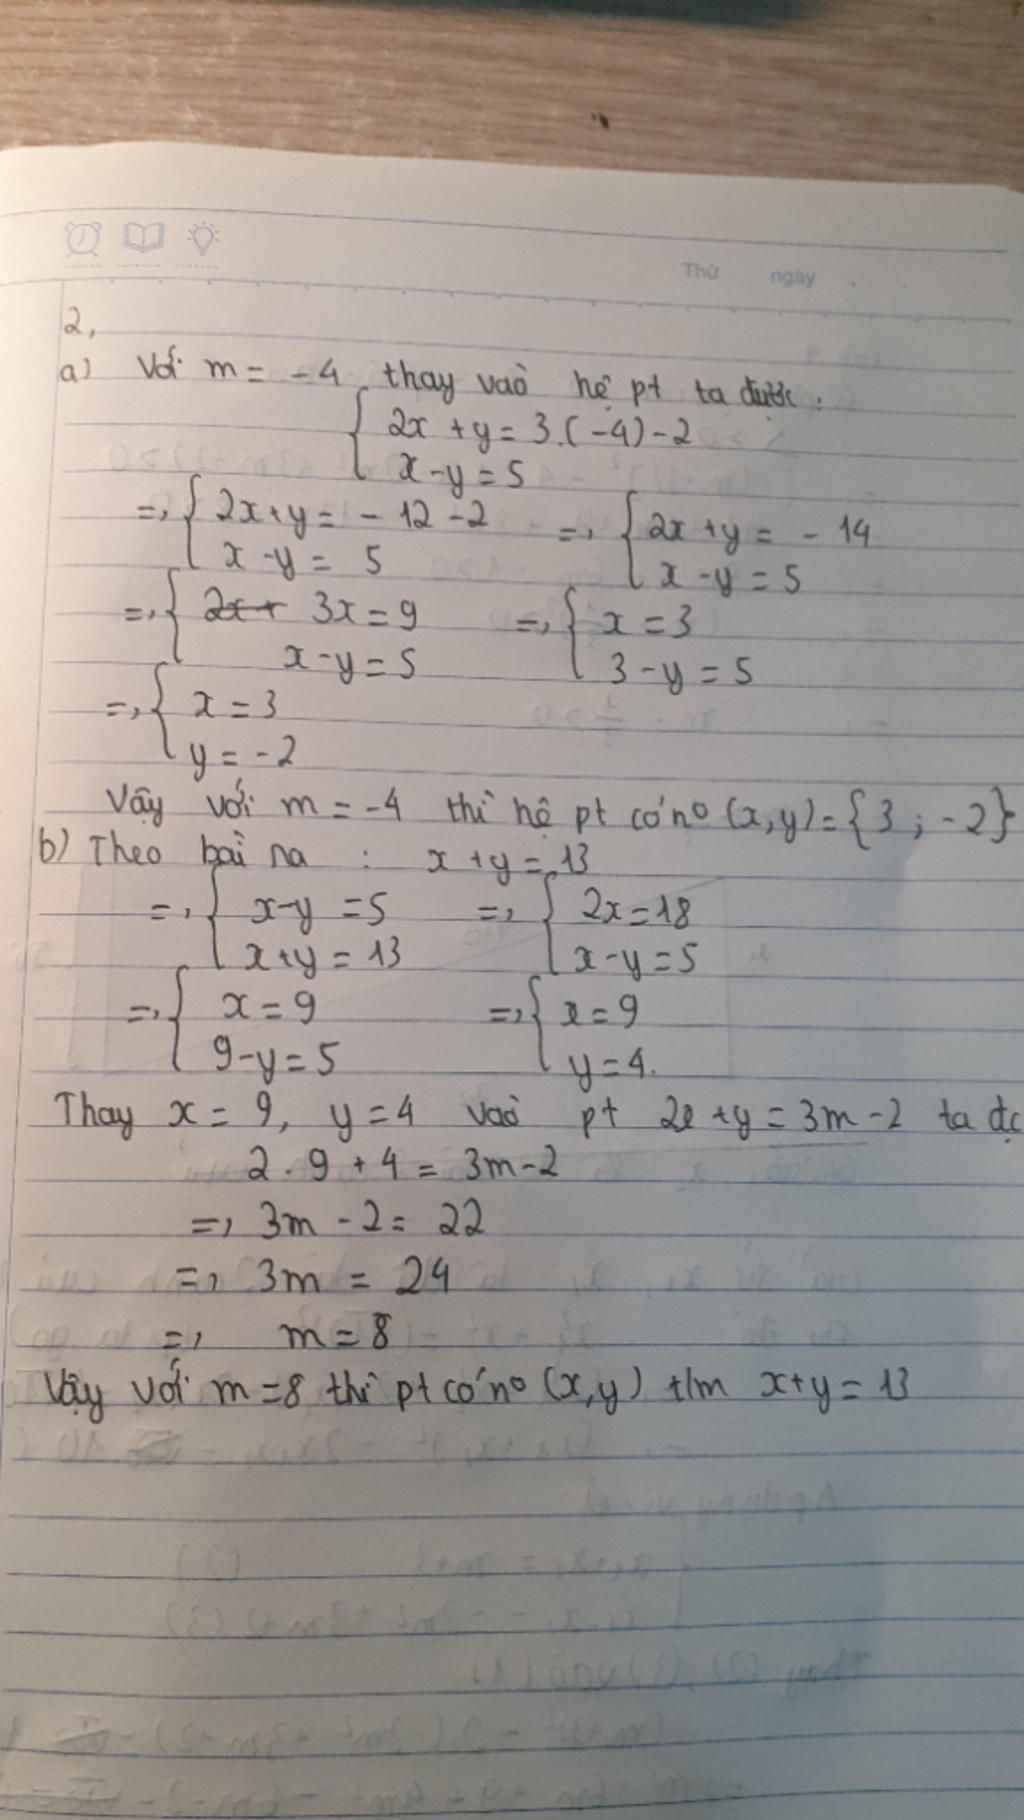 Thứ ngày
2,
a) Với m = -4 thay vào hệ pt ta được:
{ 2x + y = 3.(-4) - 2
x - y = 5
=> { 2x + y = - 12 - 2 => { 2x + y = - 14
x - y = 5 x - y = 5
=> { 3x = 9 => { x = 3
x - y = 5 3 - y = 5
=> { x = 3
y = -2
Vậy với m = -4 thì hệ pt có no (x,y) = {3 ; -2}
b) Theo bài ra : x + y = 13
=> { x - y = 5 => { 2x = 18
x + y = 13 x - y = 5
=> { x = 9 => { x = 9
9 - y = 5 y = 4.
Thay x = 9, y = 4 vào pt 2x + y = 3m - 2 ta đc
2 . 9 + 4 = 3m - 2
=> 3m - 2 = 22
=> 3m = 24
=> m = 8
Vậy với m = 8 thì pt có no (x,y) t/m x + y = 13